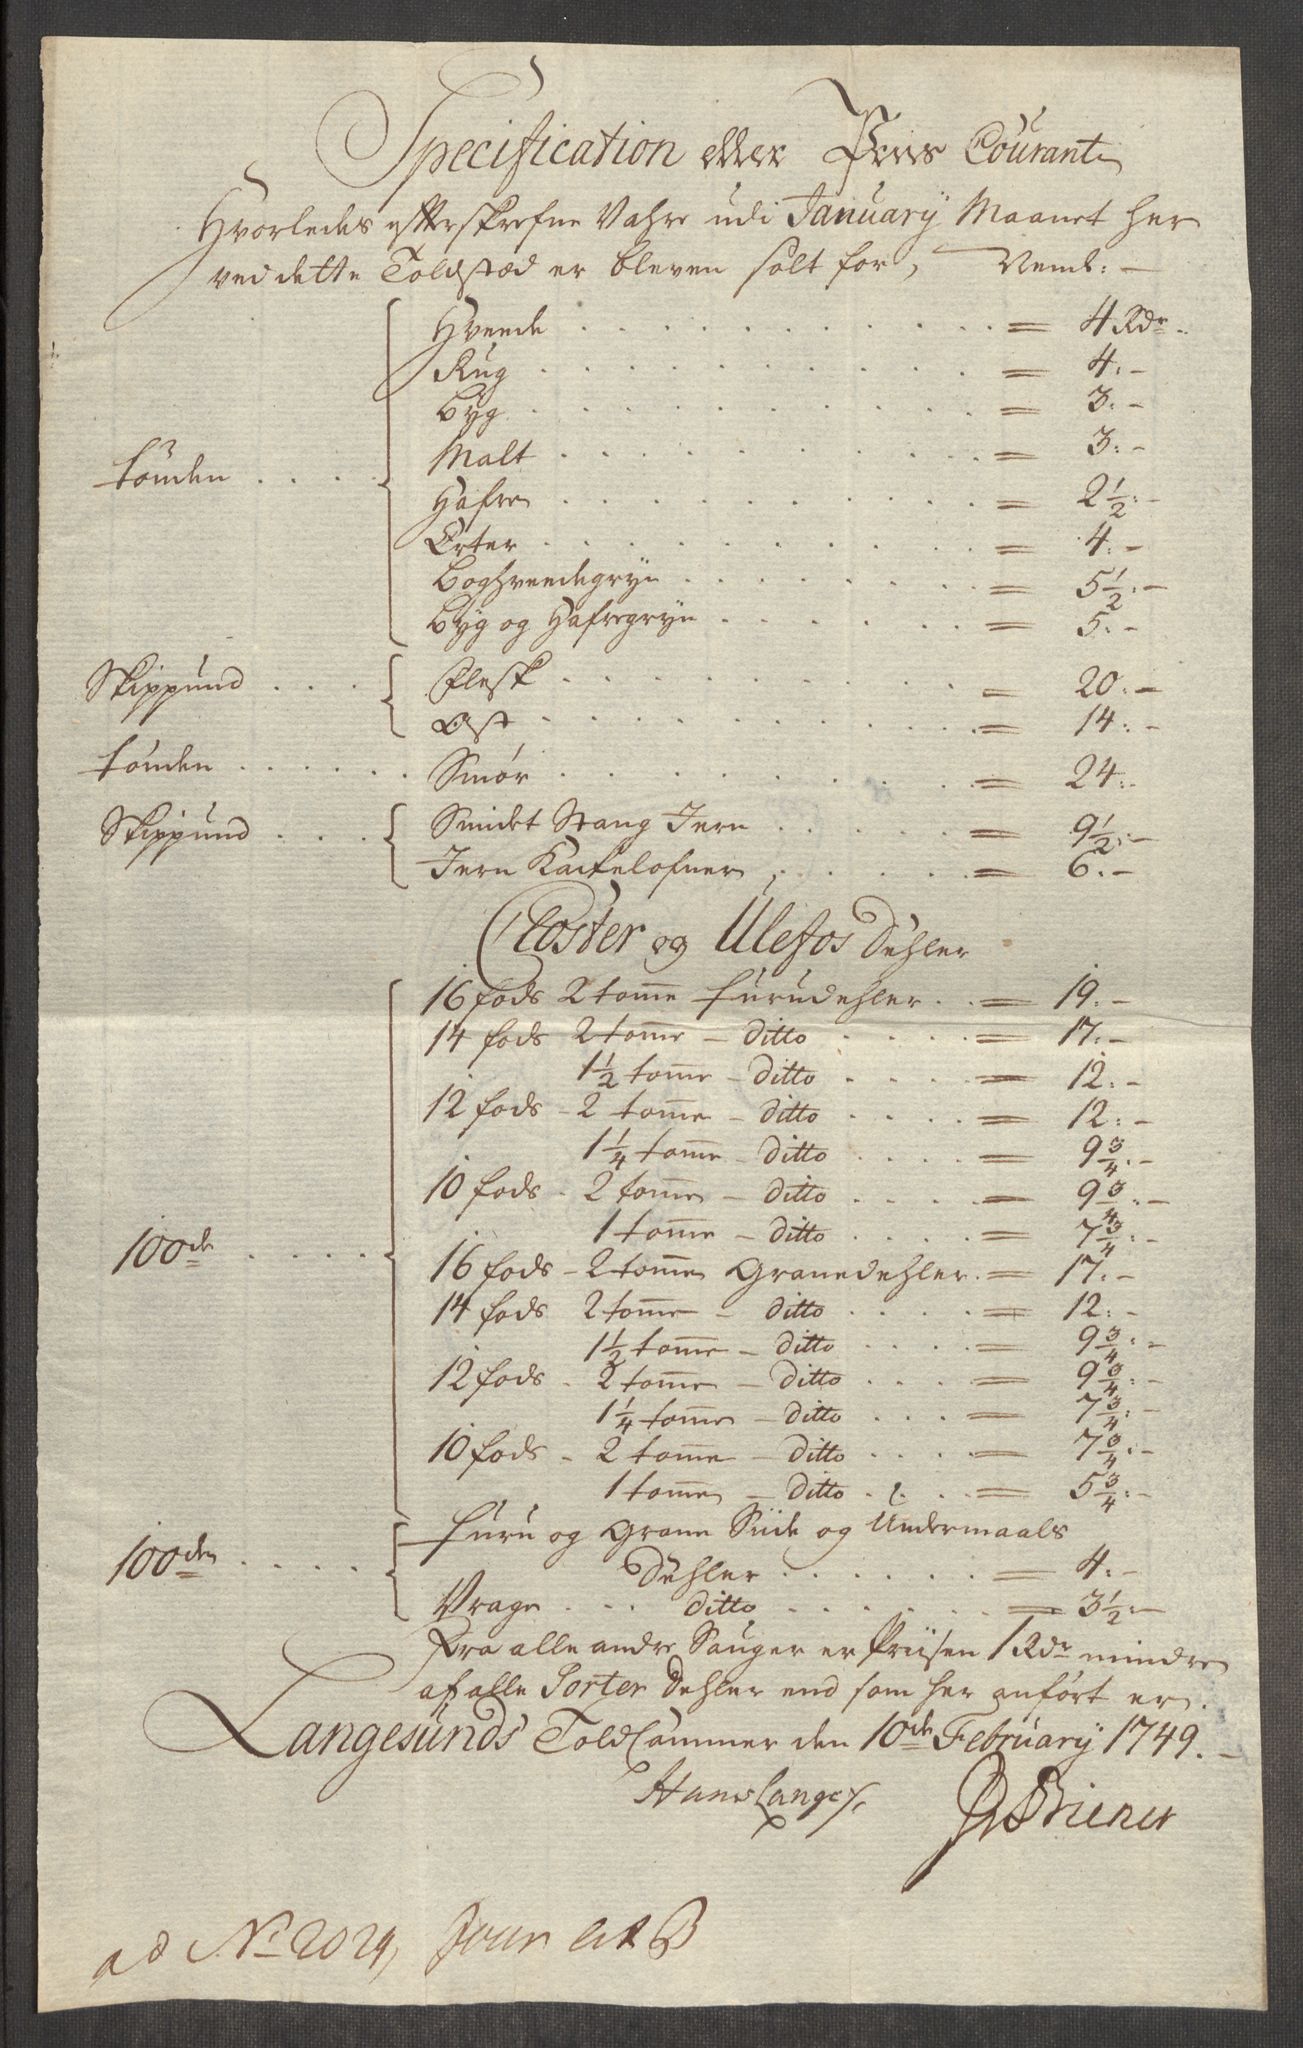 Specification eller Priis Courant
Hvorledes efterskrefne Vahre udi January Maanet her
ved dette Toldstæd er bleven solt for, Neml: —
Hvede = 4 Rdr.
Rug = 4: —
Byg = 3: —
Malt = 3: —
Tönden
Hafre = 2½: —
Erter = 4: —
Boghveedegryn = 5½: —
Byg og Hafregryn = 5: —
Skippund
Flesk = 20: —
Ost = 14: —
Tönden Smör = 24: —
Skippund
Smidet Stang Jern = 9½: —
Jern Kackelofner = 6: —
Closter og Ulefos Dehler
16 fods 2 tomme furudehler = 19: —
14 fods 2 tomme — ditto = 17: —
1½ tomme — ditto = 12: —
12 fods — 2 tomme — ditto = 12: —
1¼ tomme — ditto = 9¾: —
10 fods — 2 tomme — ditto = 9¾: —
1 tomme — ditto = 7¾: —
100de
16 fods — 2 tomme Granedehler = 17: —
14 fods 2 tomme — ditto = 12: —
1½ tomme — ditto = 9¾: —
12 fods — 2 tomme — ditto = 9¾: —
1¼ tomme — ditto = 7¾: —
10 fods — 2 tomme — ditto = 7¾: —
1 tomme — ditto = 5¾: —
100den
furu og Grane Siide og Undermaals
Dehler = 4: —
Vrage ditto = 3½: —
Fra alle andre Sauger er Priisen 1 Rdr mindre
af alle Sorter Dehler end som her anfört er.
Langesunds Told Cammer den 10de February 1749. —
Hans Lange
ad No 2029, Jour Lit B